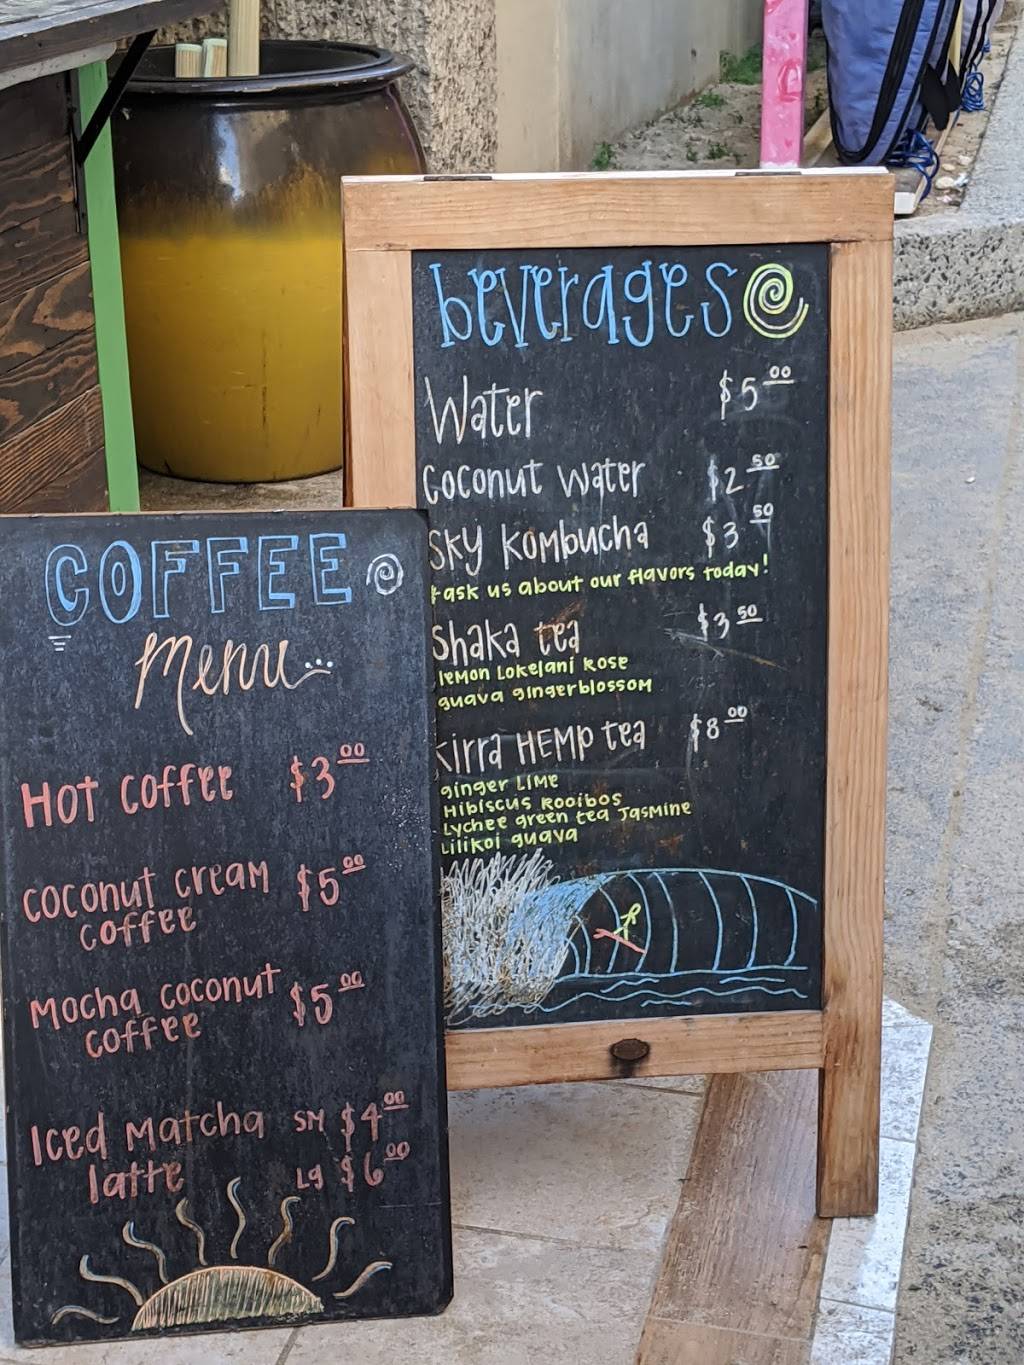 beverages
Water $5.00
Coconut Water $2.50
Sky Kombucha $3.50
*ask us about our flavors today!
Shaka tea $3.50
lemon Lokelani Rose
guava gingerblossom
Kirra HEMP tea $8.00
ginger Lime
Hibiscus Rooibos
Lychee green tea Jasmine
Lilikoi guava
COFFEE
Menu...
Hot coffee $3.00
Coconut cream $5.00
coffee
Mocha coconut $5.00
coffee
Iced Matcha SM $4.00
latte Lg $6.00